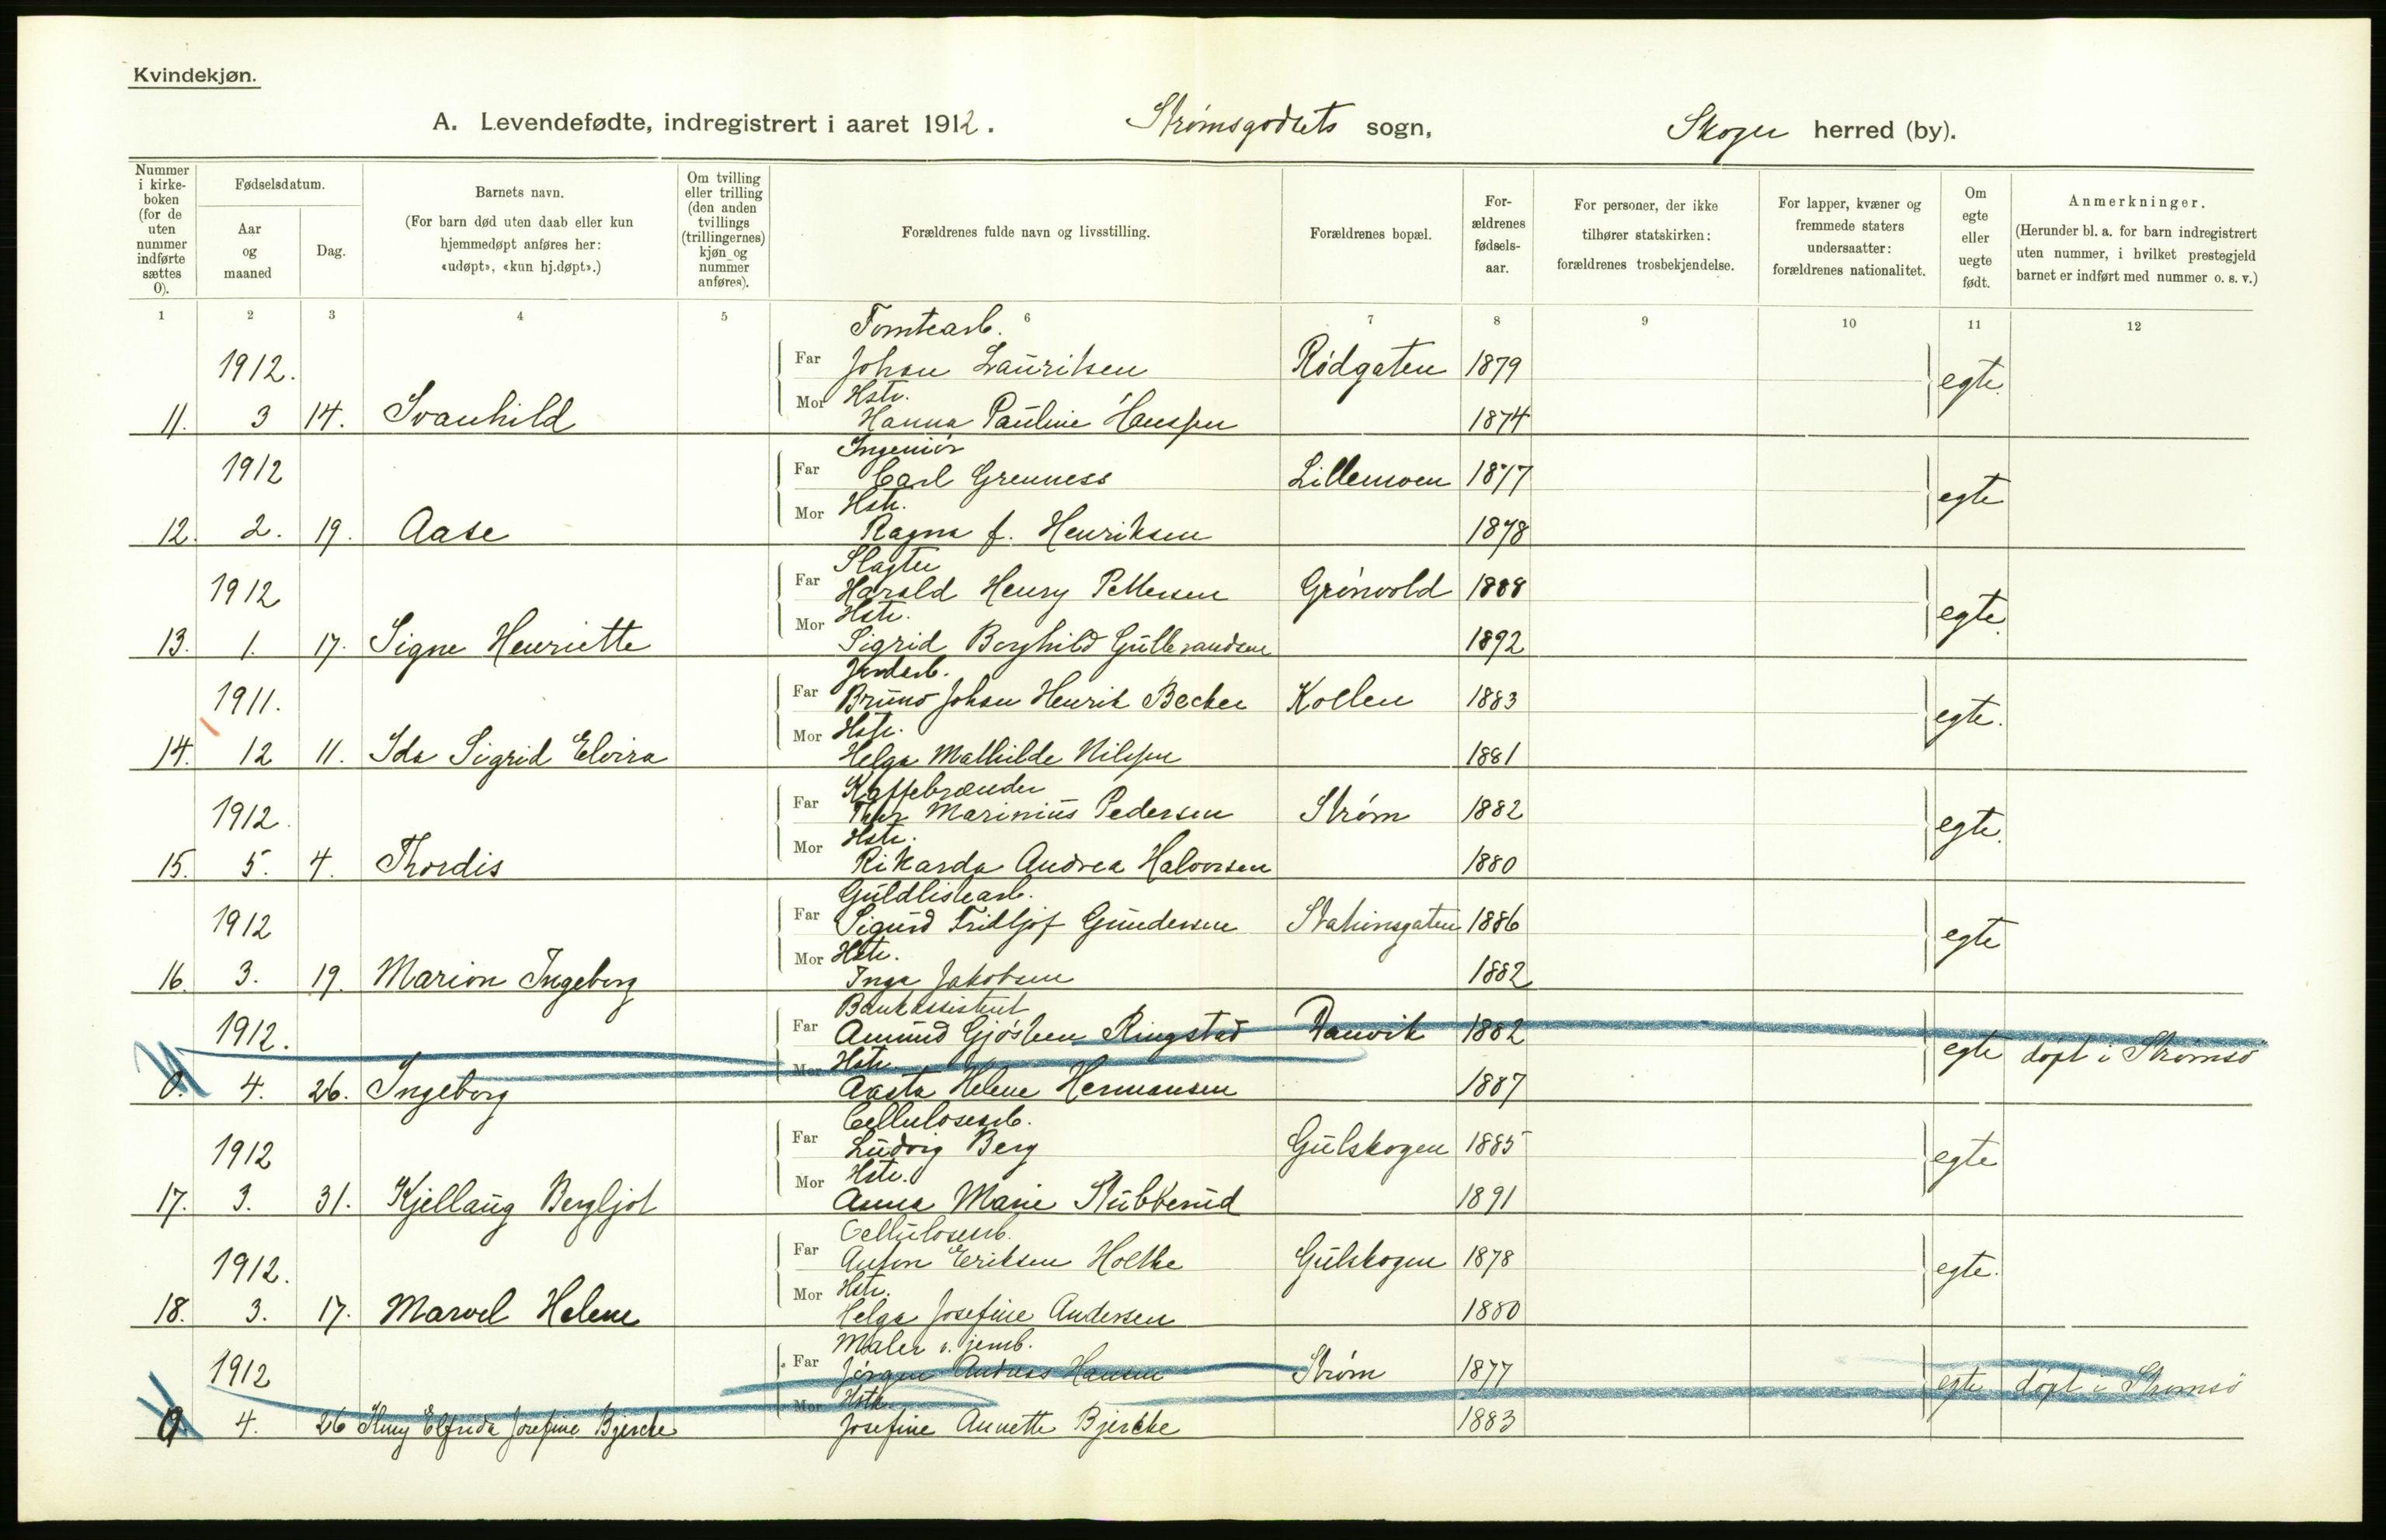 Kvindekjøn.
A. Levendefødte, indregistrert i aaret 1912. Strømsgodsets sogn, Skoger herred (by).
Nummer i kirkeboken (for de uten nummer indførte sættes 0).
Fødselsdatum.
Aar og maaned
Dag.
Barnets navn.
(For barn død uten daab eller kun hjemmedøpt anføres her: «udøpt», «kun hj.døpt».)
Om tvilling eller trilling (den anden tvillings (trillingernes) kjøn og nummer anføres).
Forældrenes fulde navn og livsstilling.
Forældrenes bopæl.
Forældrenes fødselsaar.
For personer, der ikke tilhører statskirken: forældrenes trosbekjendelse.
For lapper, kvæner og fremmede staters undersaatter: forældrenes nationalitet.
Om egte eller uegte født.
Anmerkninger.
(Herunder bl. a. for barn indregistrert uten nummer, i hvilket prestegjeld barnet er indført med nummer o. s. v.)
1 2 3 4 5 6 7 8 9 10 11 12
Tomtearb.
1912. Far Johan Lauritsen Rødgaten 1879 egte.
Mor Hstr.
11. 3 14. Svanhild Hanna Pauline Hanssen 1874
Ingeniør
1912 Far Carl Grenness Lillemoen 1877 egte
Mor Hstr.
12. 2. 19. Aase Ragna f. Henriksen 1878
Slagter
1912 Far Harald Henry Pettersen Grønvold 1888 egte.
Mor Hstr.
13. 1. 17. Signe Henriette Sigrid Borghild Gulbrandsen 1892
Jernarb.
1911. Far Bruno Johan Henrik Becker Kollen 1883 egte.
Mor Hstr.
14. 12 11. Ida Sigrid Elvira Helga Mathilde Nilssen 1881
Kaffebrænder
1912. Far Thor Marinius Pedersen Strøm 1882 egte.
Mor Hstr.
15. 5. 4. Thordis Rikarda Andrea Halvorsen 1880
Guldlistearb.
1912 Far Sigurd Fridtjof Gundersen Stationsgaten 1886 egte
Mor Hstr.
16. 3. 19. Marion Ingeborg Inga Jakobsen 1882
Bankassistent
1912. Far Amund Gjøsteen Ringstad Danvik 1882 egte døpt i Strømsö
Mor Hstr.
0. 4. 26. Ingeborg Aasta Helene Hermansen 1887
Cellulosearb.
1912 Far Ludvig Berg Gulskogen 1885 egte
Mor Hstr.
17. 3. 31. Kjellaug Bergljot Anna Marie Stubberud 1891
Cellulosearb.
1912. Far Anton Eriksen Holthe Gulskogen 1878 egte.
Mor Hstr.
18. 3. 17. Marvel Helene Helga Josefine Andersen 1880
Maler v. jernb.
1912 Far Jørgen Andreas Hansen Strøm 1877 egte døpt i Strømsö
Mor Hstr.
0 4. 26 Elfrida Josefine Bjercke Josefine Annette Bjercke 1883